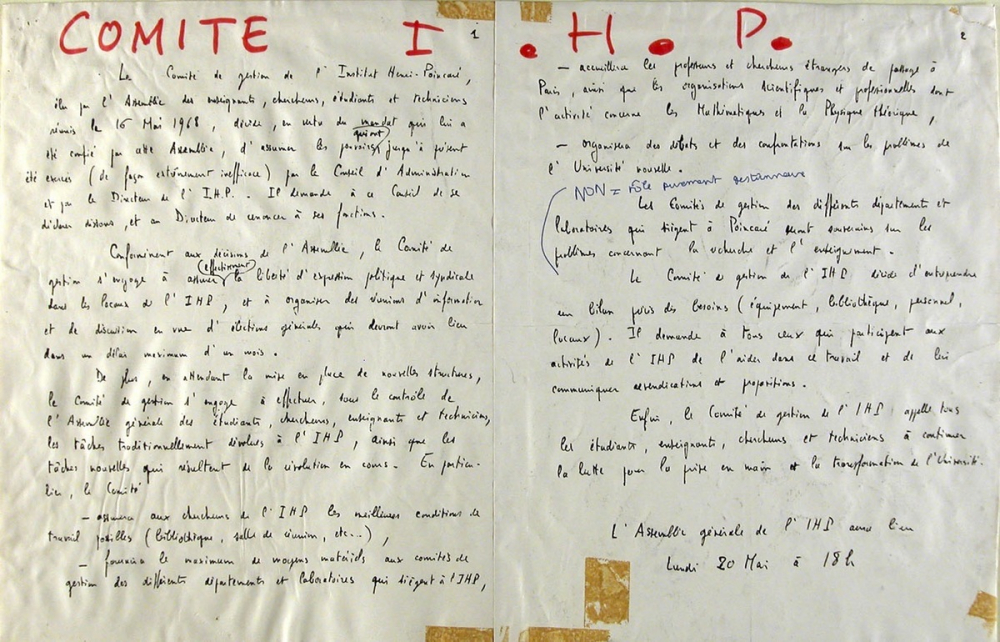 COMITE I . H . P.
1
Le Comité de gestion de l'Institut Henri-Poincaré,
élu par l'Assemblée des enseignants, chercheurs, étudiants et techniciens
réunis le 16 Mai 1968, décide, en vertu du mandat qui lui a
été confié par cette Assemblée, d'assumer les pouvoirs jusqu'à présent
qui ont
été exercés (de façon extrêmement inefficace) par le Conseil d'Administration
et par le Directeur de l'I.H.P. Il demande à ce Conseil de se
déclarer dissous, et au Directeur de renoncer à ses fonctions.
Conformément aux décisions de l'Assemblée, le Comité de
gestion s'engage à assurer effectivement la liberté d'expression politique et syndicale
dans les locaux de l'IHP, et à organiser des réunions d'information
et de discussion en vue d'élections générales qui devront avoir lieu
dans un délai maximum d'un mois.
De plus, en attendant la mise en place de nouvelles structures,
le Comité de gestion s'engage à effectuer, sous le contrôle de
l'Assemblée générale des étudiants, chercheurs, enseignants et techniciens,
les tâches traditionnellement dévolues à l'IHP, ainsi que les
tâches nouvelles qui résultent de la révolution en cours. En particu-
lier, le Comité
- assurera aux chercheurs de l'IHP les meilleures conditions de
travail possibles (bibliothèque, salle de réunion, etc...),
- fournira le maximum de moyens matériels aux comités de
gestion des différents départements et laboratoires qui siègent à l'IHP,
2
- accueillera les professeurs et chercheurs étrangers de passage à
Paris, ainsi que les organisations scientifiques et professionnelles dont
l'activité concerne les Mathématiques et la Physique théorique,
- organisera des débats et des confrontations sur les problèmes de
l'Université nouvelle.
NON = rôle purement gestionnaire
Les Comités de gestion des différents départements et
laboratoires qui siègent à Poincaré sont souverains sur les
problèmes concernant la recherche et l'enseignement.
Le Comité de gestion de l'IHP décide d'entreprendre
un bilan précis des besoins (équipement, bibliothèque, personnel,
locaux). Il demande à tous ceux qui participent aux
activités de l'IHP de l'aider dans ce travail et de lui
communiquer revendications et propositions.
Enfin, le Comité de gestion de l'IHP appelle tous
les étudiants, enseignants, chercheurs et techniciens à continuer
la lutte pour la prise en main et la transformation de l'Université.
L'Assemblée générale de l'IHP aura lieu
Lundi 20 Mai à 18h